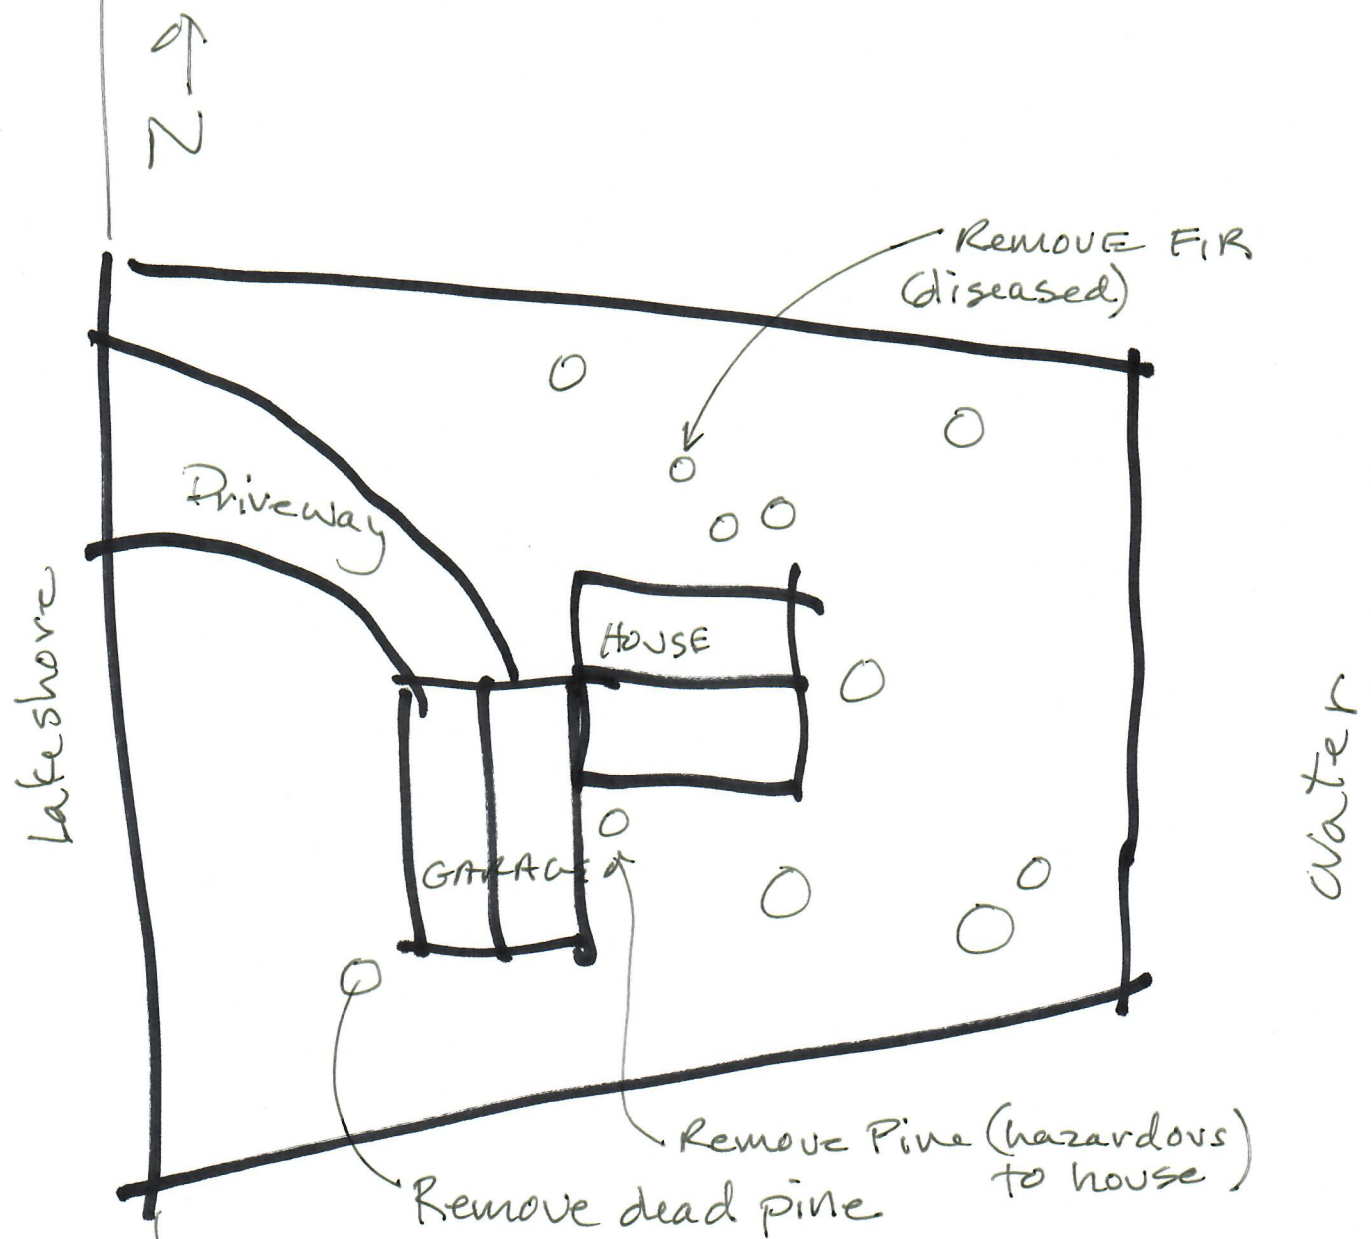 N
Remove FIR
(diseased)
Driveway
HOUSE
Lakeshore
water
GARAGE
Remove Pine (hazardous
to house)
Remove dead pine